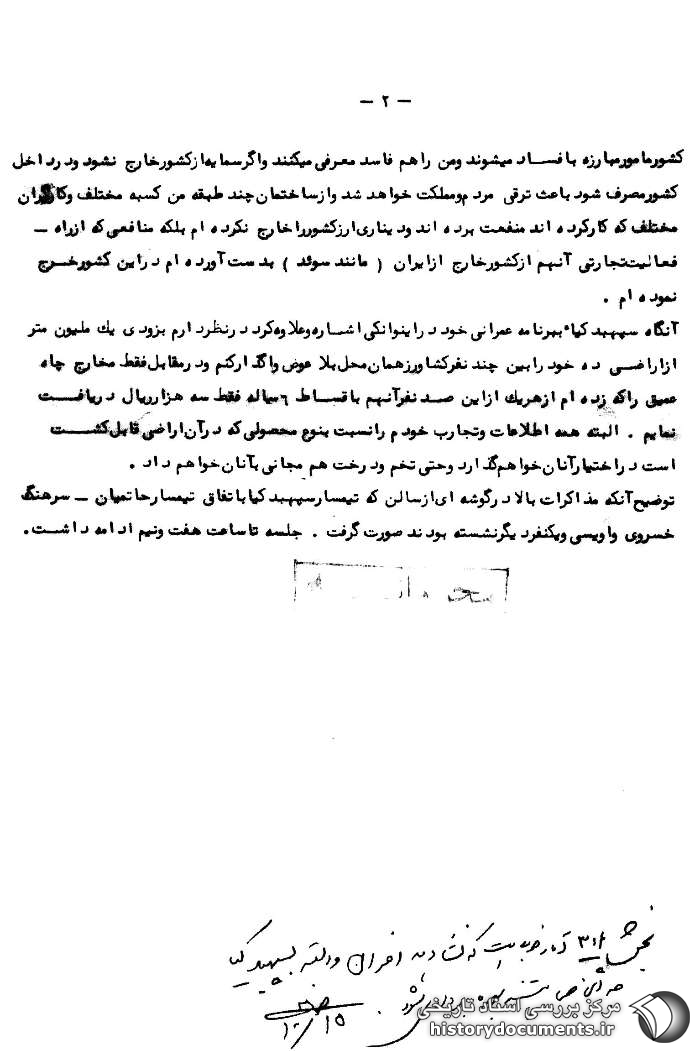 — ۲ —
کشور مامور مبارزه با فساد میشوند ومن را هم فاسد معرفی میکنند واگر سمایه از کشور خارج نشود ودر داخل
کشور مصرف شود باعث ترقی مردم ومملکت خواهد شد واز ساختمان چند طبقه من کسبه مختلف وکارگران
مختلف که کار کرده اند منفعت برده اند ودیناری ارز کشور را خارج نکرده ام بلکه منافعی که از راه —
فعالیت تجارتی آنهم از کشور خارج از ایران ( مانند سوئد ) بدست آورده ام در این کشور خرج
نموده ام .
آنگاه سپهبد کیا ببرنامه عمرانی خود در اینوانکی اشاره وعلاوه کرد در نظر دارم بزودی یك ملیون متر
از اراضی ده خود را بین چند نفر کشاورز همان محل بلا عوض واگذار کنم ودر مقابل فقط مخارج چاه
عمیق را که زده ام از هر یك از این صد نفر آنهم با قساط ٦ ساله فقط سه هزار ریال دریافت
نمایم . البته همه اطلاعات وتجارب خودم را نسبت بنوع محصولی که در آن اراضی قابل کشت
است در اختیار آنان خواهم گذارد وحتی تخم ودرخت هم مجانی بآنان خواهم داد .
توضیح آنکه مذاکرات بالا در گوشه ای از سالن که تیمسار سپهبد کیا باتفاق تیمسار حاتمیان — سرهنگ
خسروی واویسی ویکنفر دیگر نشسته بودند صورت گرفت . جلسه تا ساعت هفت ونیم ادامه داشت .
بخش ۳۱۲
سپهبد کیا
۱۲/۱۵
مرکز بررسی اسناد تاریخی
historydocuments.ir